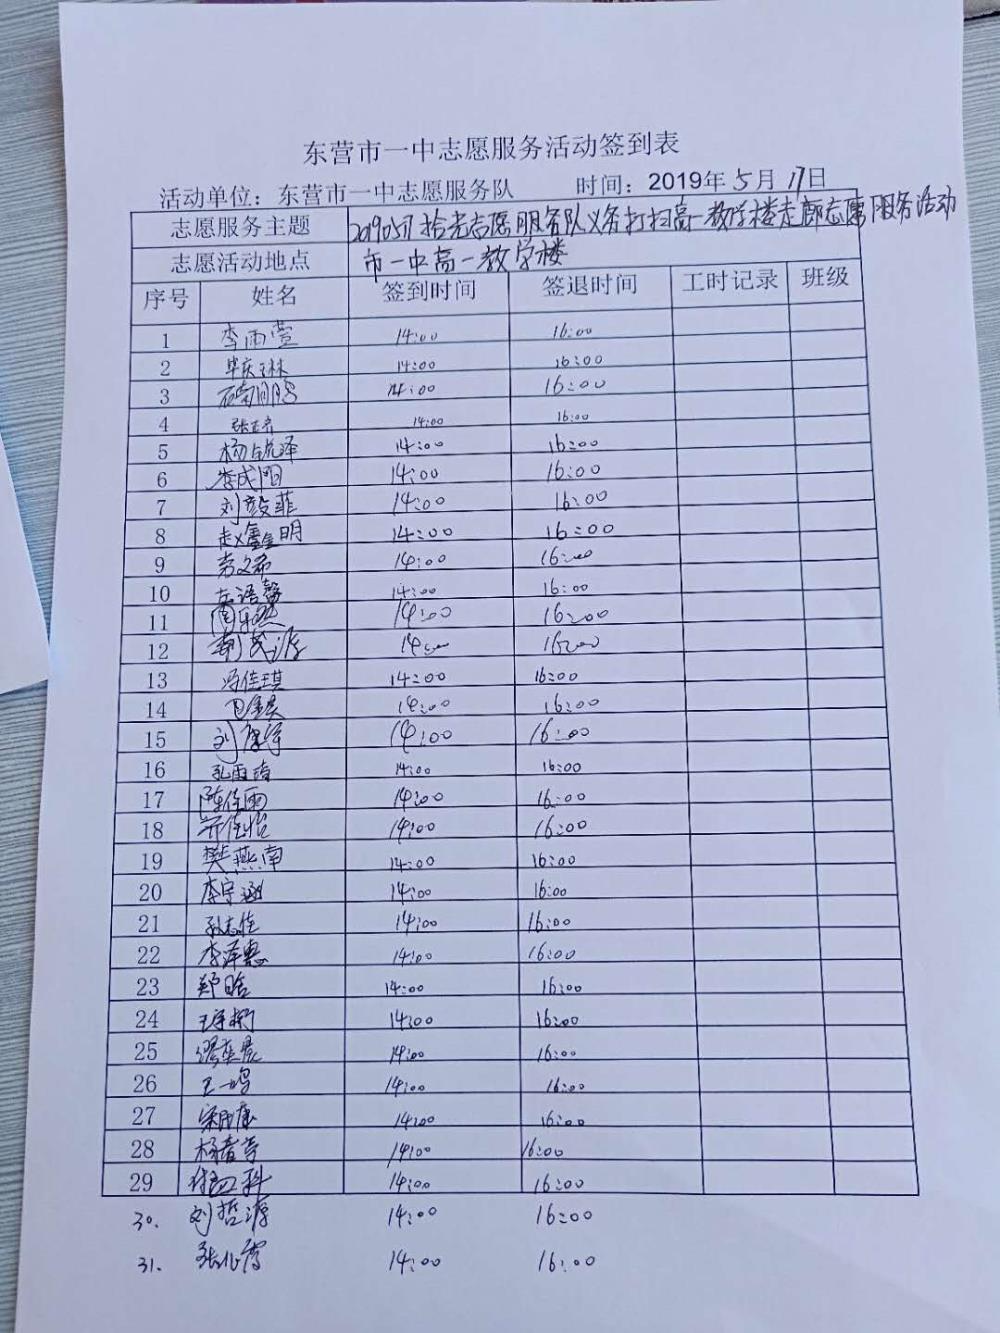 东营市一中志愿服务活动签到表
活动单位：东营市一中志愿服务队 时间：2019年5月17日
志愿服务主题 20190517拾光志愿服务队义务打扫高一教学楼走廊志愿服务活动
志愿活动地点 市一中高一教学楼
序号 姓名 签到时间 签退时间 工时记录 班级
1 李雨萱 14:00 16:00
2 毕庆琳 14:00 16:00
3 14:00 16:00
4 14:00 16:00
5 杨锐泽 14:00 16:00
6 李成阳 14:00 16:00
7 刘毅菲 14:00 16:00
8 赵鑫明 14:00 16:00
9 14:00 16:00
10 语馨 14:00 16:00
11 周乐然 14:00 16:00
12 14:00 16:00
13 冯佳琪 14:00 16:00
14 14:00 16:00
15 刘 14:00 16:00
16 孔雨 14:00 16:00
17 陈佳雨 14:00 16:00
18 乔佳怡 14:00 16:00
19 樊燕南 14:00 16:00
20 李宇涵 14:00 16:00
21 孙志佳 14:00 16:00
22 李泽惠 14:00 16:00
23 郑晗 14:00 16:00
24 王 14:00 16:00
25 14:00 16:00
26 王一鸣 14:00 16:00
27 宋雨康 14:00 16:00
28 杨 14:00 16:00
29 14:00 16:00
30. 刘哲源 14:00 16:00
31. 张 14:00 16:00